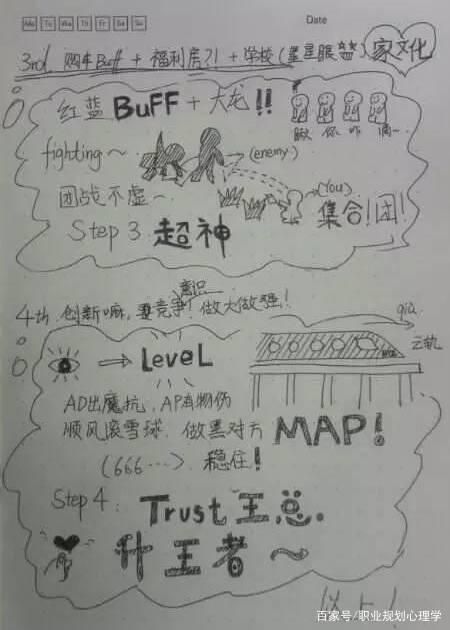 Mo Tu We Th Fr Sa Su
Date
3rd. 购车Buff + 福利房?! + 学校(星星眼) 家文化
红蓝BUFF + 大龙!!
fighting~
(enemy)
团战不虚~
(You)
集合!团!
Step 3 超神
4th 创新嘛,要竞争意识!做大做强!
→ LeveL
云轨
AD出魔抗,AP出物伤
顺风滚雪球.做黑对方
MAP!
(666…)、稳住!
Step 4: Trust 王总.
升王者~
以上!
百家号/职业规划心理学